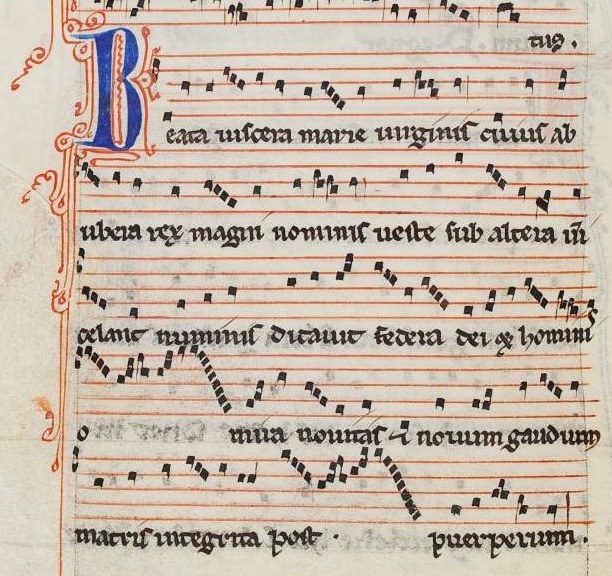 tus.
Beata uiscera marie uirginis cuius ab
ubera rex magni nominis ueste sub altera
celauit numinis dictauit federa dei et hominis
o mira nouitas et nouum gaudium
matris integrita post puerperium.